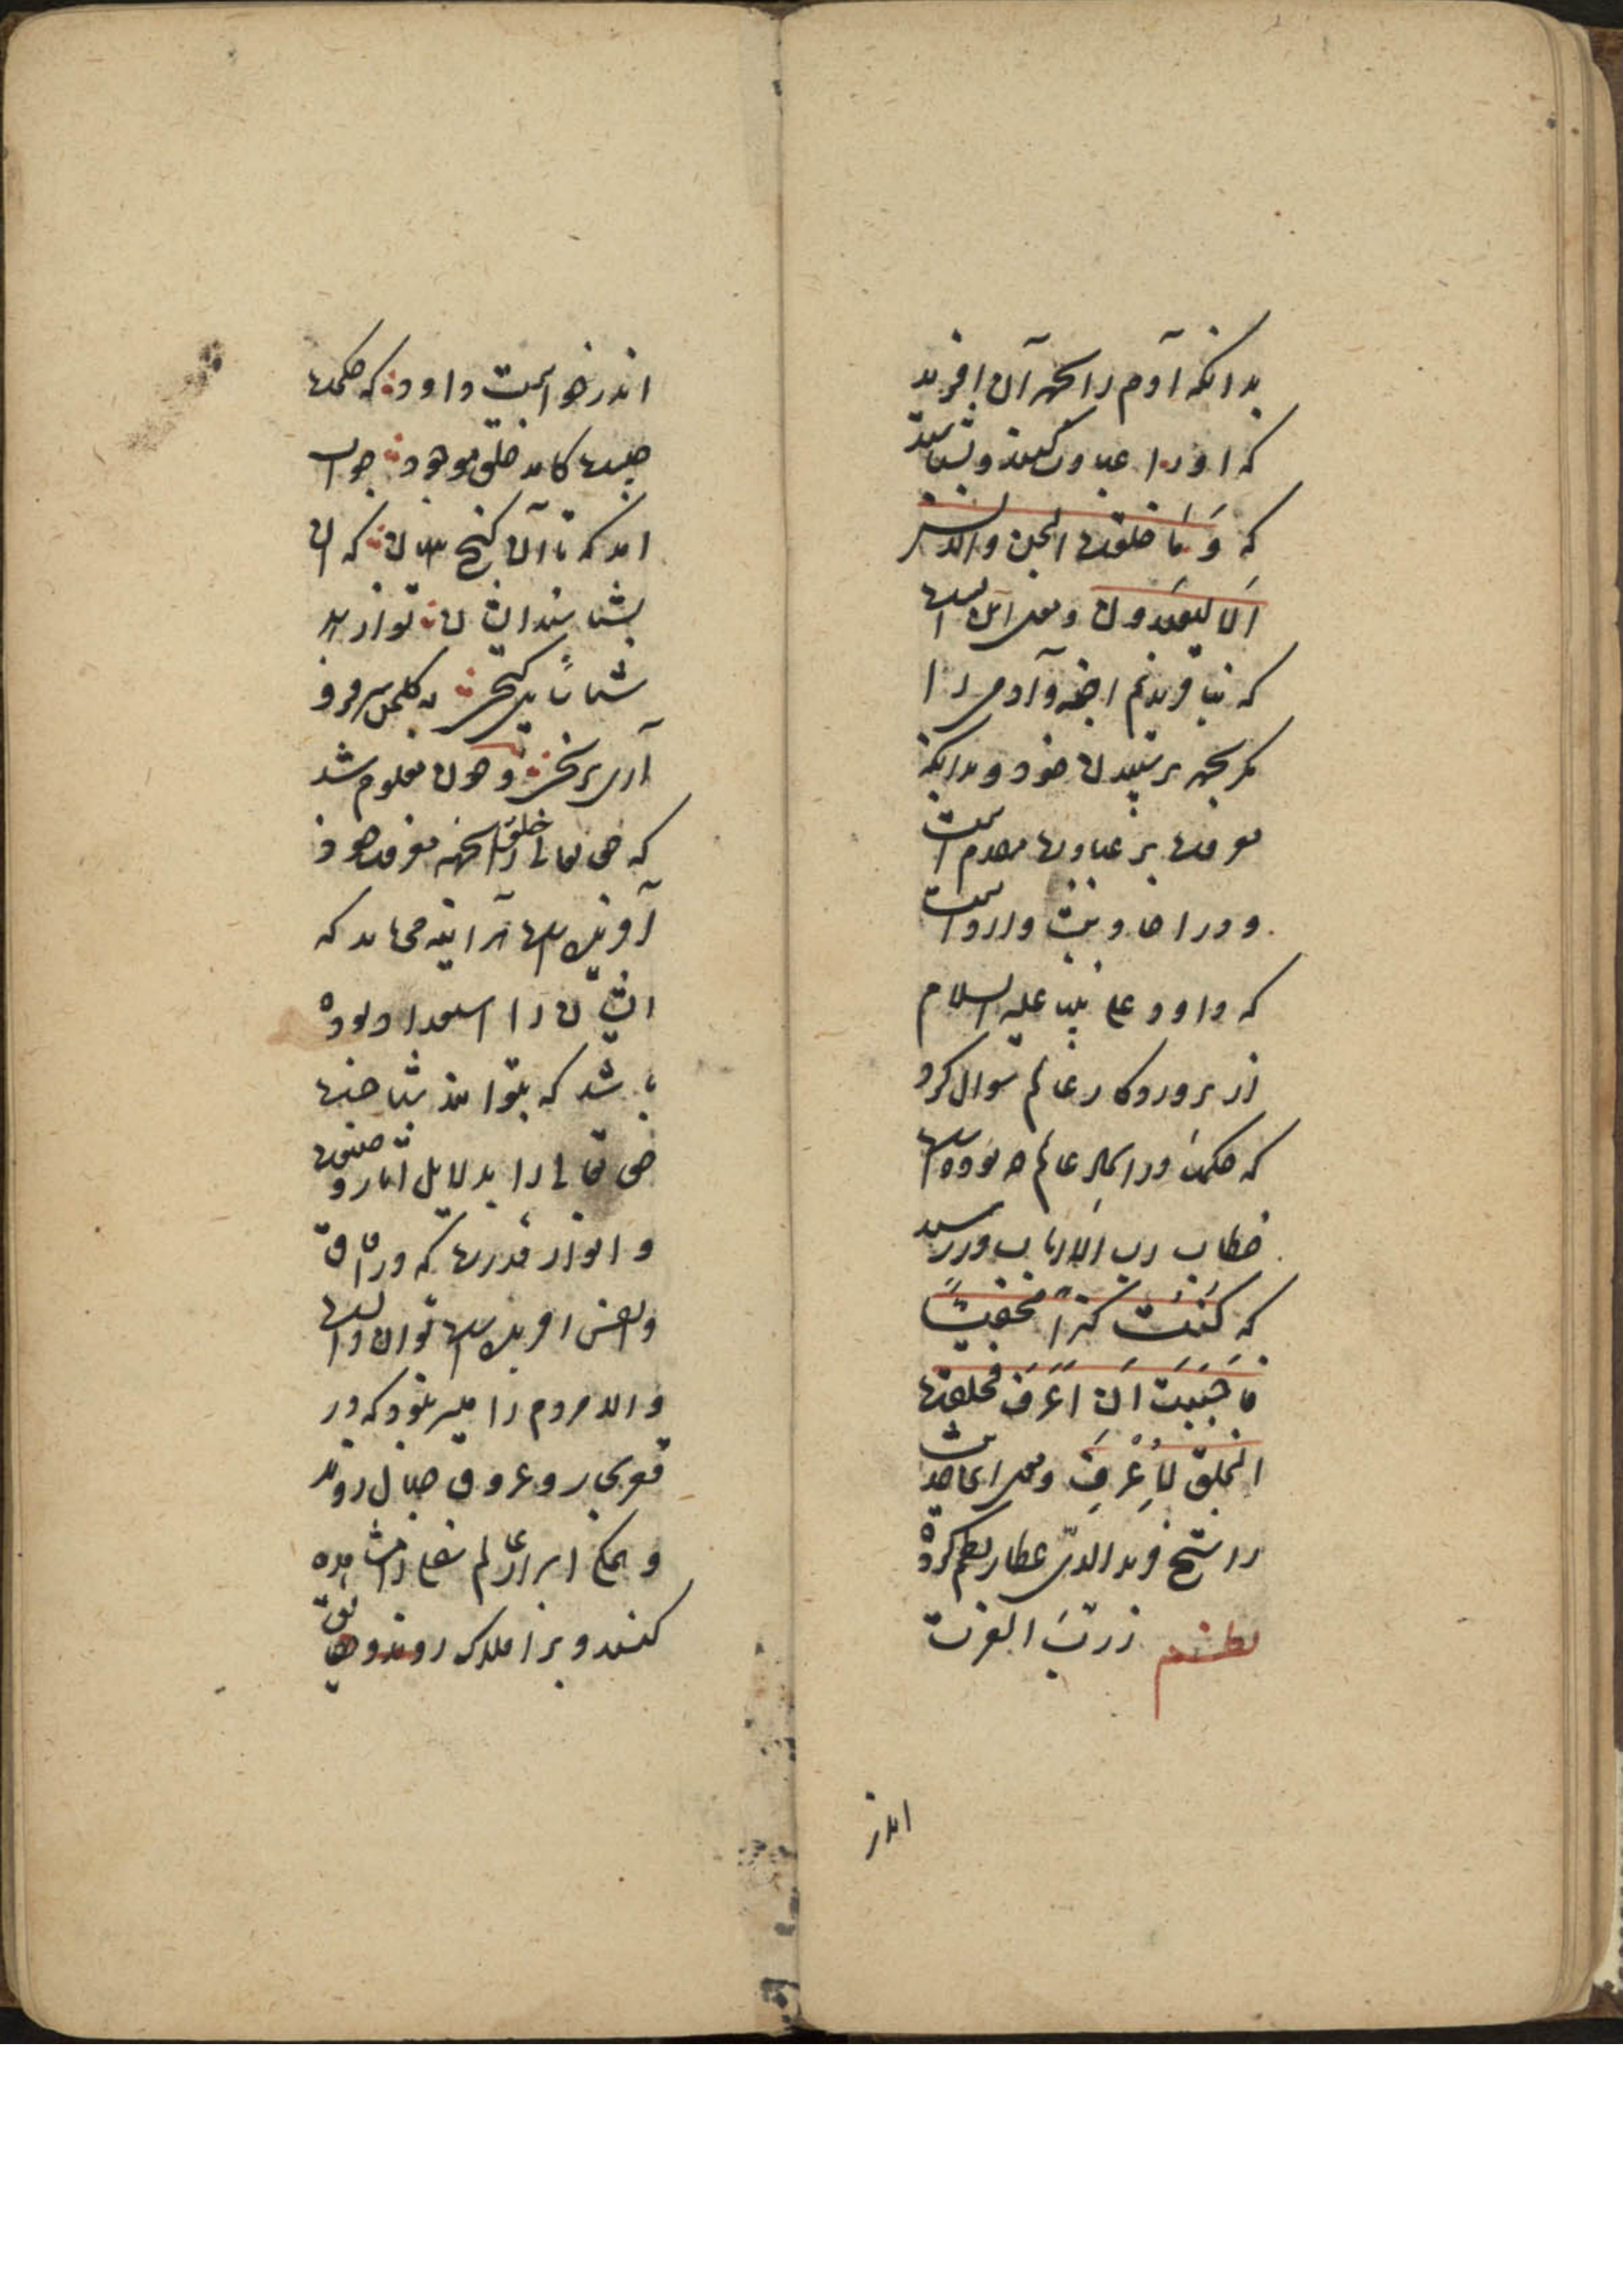 بدانکه آدم را بجهة آن افرید
که او را عبادت کنند و بشناسند
که وَ مَا خلقت الجن والانس
اَلا لیعبدون ومعنی این است
که نیافریدیم اجنّه و آدمی را
مکر بجهة پرستیدن خود و بدانکه
معرفت بر عبادت مقدم است
و در احادیث وارد است
که داود علی نبینا علیه السلام
از پروردکار عالم سوال کرد
که حکمت در ایجاد عالم چه بوده است
خطاب رب الارباب در رسید
که کُنتُ کنزاً مخفیاً
فاَحبَبتَ اَن اُعرَف فخلقت
الخلق لِاُعْرَفَ ومعنی این حدیث
را شیخ فرید الدین عطار نظم کرده
نظم ز ربّ العزت
اندر
اندر خواست داود که حکمت
چیست کامد خلق موجود جواب
امد که تا آن کنج پنهان که ان
بشناسند ایشان تو از بهر
شناسایی کنجی به کلخن سر فرو
آری برنجی و چون معلوم شد
که حق تعالی خلق را بجهة معرفت خود
آفریده است هر آینه می باید که
ایشان را استعداد بوده
باشد که بتوانند شناخت
حق تعالی را بدلایل اثار صنعت
و انوار قدرت که در افاق
و انفس افریده است توان دانست
و الا مردم را میسر نبود که در
قعر بحار و عروق جبال روند
و عالم مشاهده
کنند و بر افلاک روند و حقایق